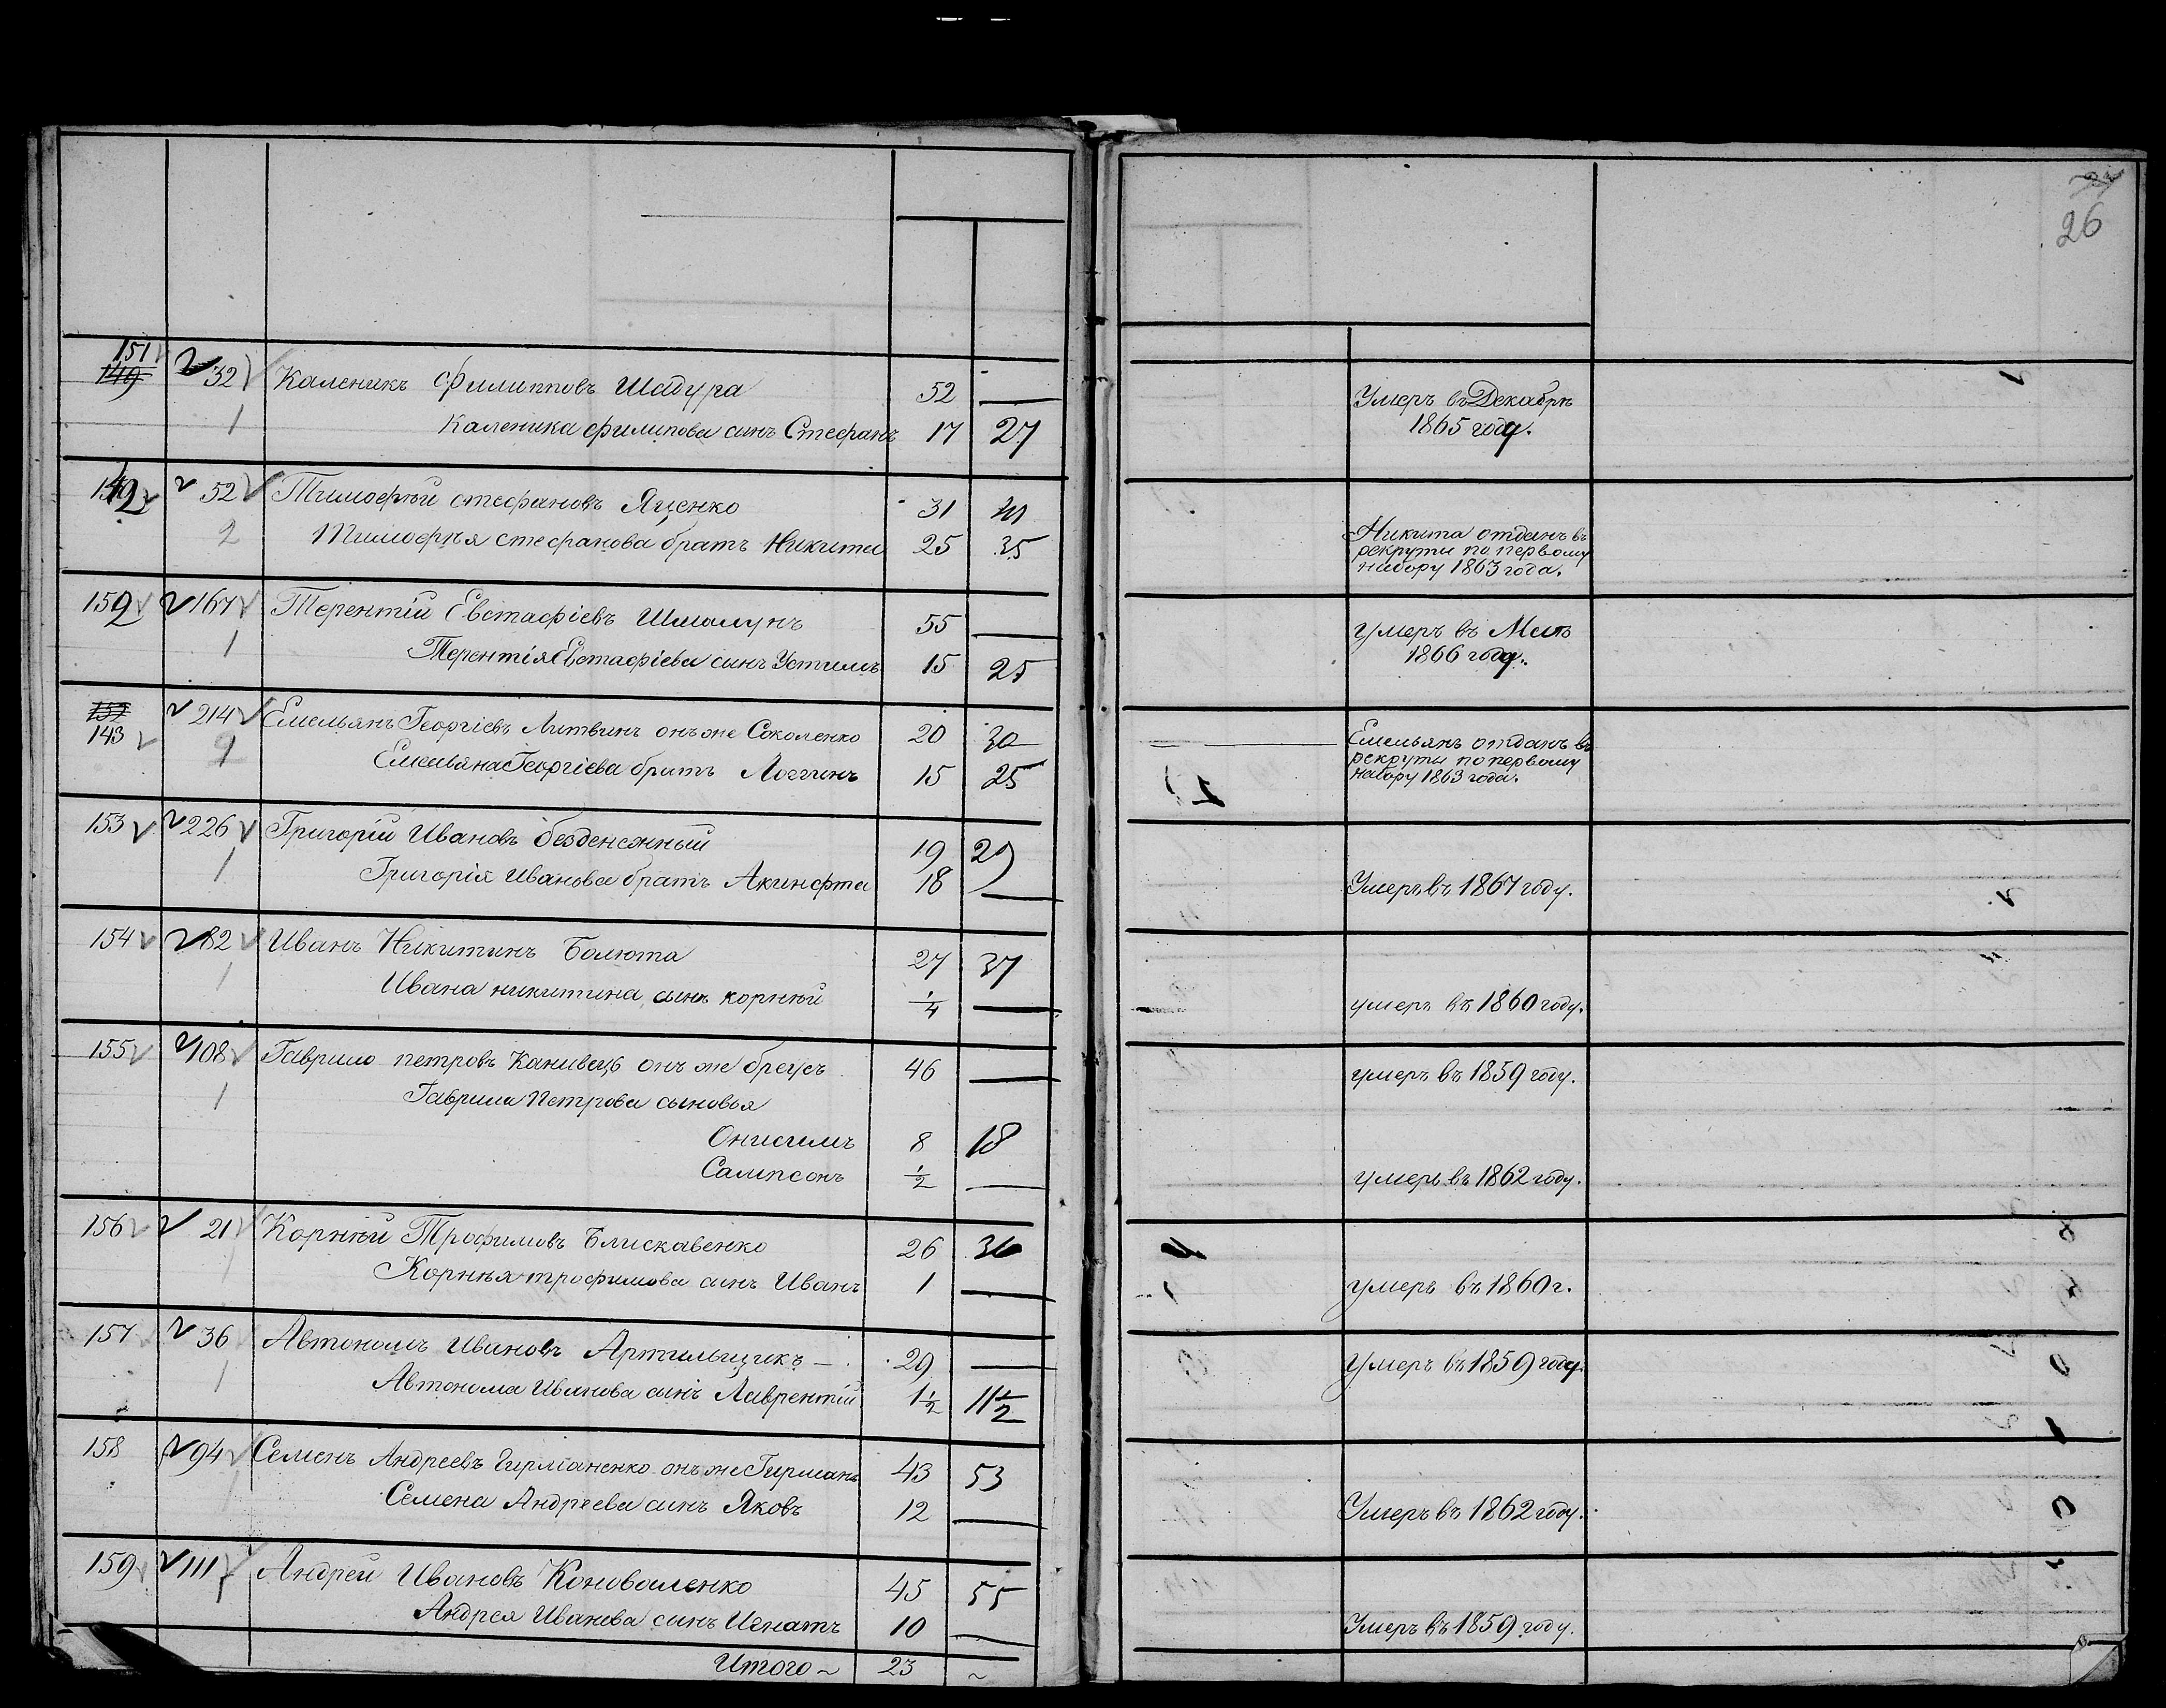 26
151
149 32 Каленикъ Филипповъ Шадура 52 — Умеръ въ Декабрѣ
1 Каленика Филипова сынъ Стефанъ 17 27 1865 году.
52 Тимофѣй Стефановъ Яценко 31 41
2 Тимофѣя Стефанова братъ Никита 25 35 Никита отданъ въ
рекруты по первому
набору 1863 года.
152 167 Терентій Евстафіевъ 55 — умеръ въ Маѣ
1 Терентія Евстафіева сынъ Устимъ 15 25 1866 году.
152 214 Емельянъ Георгіевъ Литвинъ онъ же Соколенко 20 30 Емельянъ отданъ въ
143 Емельяна Георгіева братъ Логгинъ 15 25 рекруты по первому
набору 1863 года.
153 226 Григорій Ивановъ безденежный 19 29
1 Григорія Иванова братъ Акинфта 18 — Умеръ въ 1867 году.
154 82 Иванъ Никитинъ Болюта 27 37
1 Ивана никитина сынъ корнѣй 1/4 — умеръ въ 1860 году.
155 108 Гаврило петровъ Канивецъ онъ же бреусъ 46 — умеръ въ 1859 году.
1 Гаврила Петрова сыновья
Онисимъ 8 18
Сампсонъ 1/2 — умеръ въ 1862 году.
156 21 Корнѣй Трофимовъ Блискавенко 26 36
1 Корнѣя трофимова сынъ Иванъ 1 — умеръ въ 1860 г.
157 36 Автономъ Ивановъ Артильщикъ — 29 — Умеръ въ 1859 году.
1 Автонома Иванова сынъ Лаврентій 1 1/2 11 1/2
158 94 Семенъ Андреевъ Гирманенко онъ же Гирманъ 43 53
1 Семена Андреева сынъ Яковъ 12 — Умеръ въ 1862 году.
159 111 Андрей Ивановъ Коноваленко 45 55
1 Андрея Иванова сынъ Игнатъ 10 — Умеръ въ 1859 году.
Итого ~ 23 ~